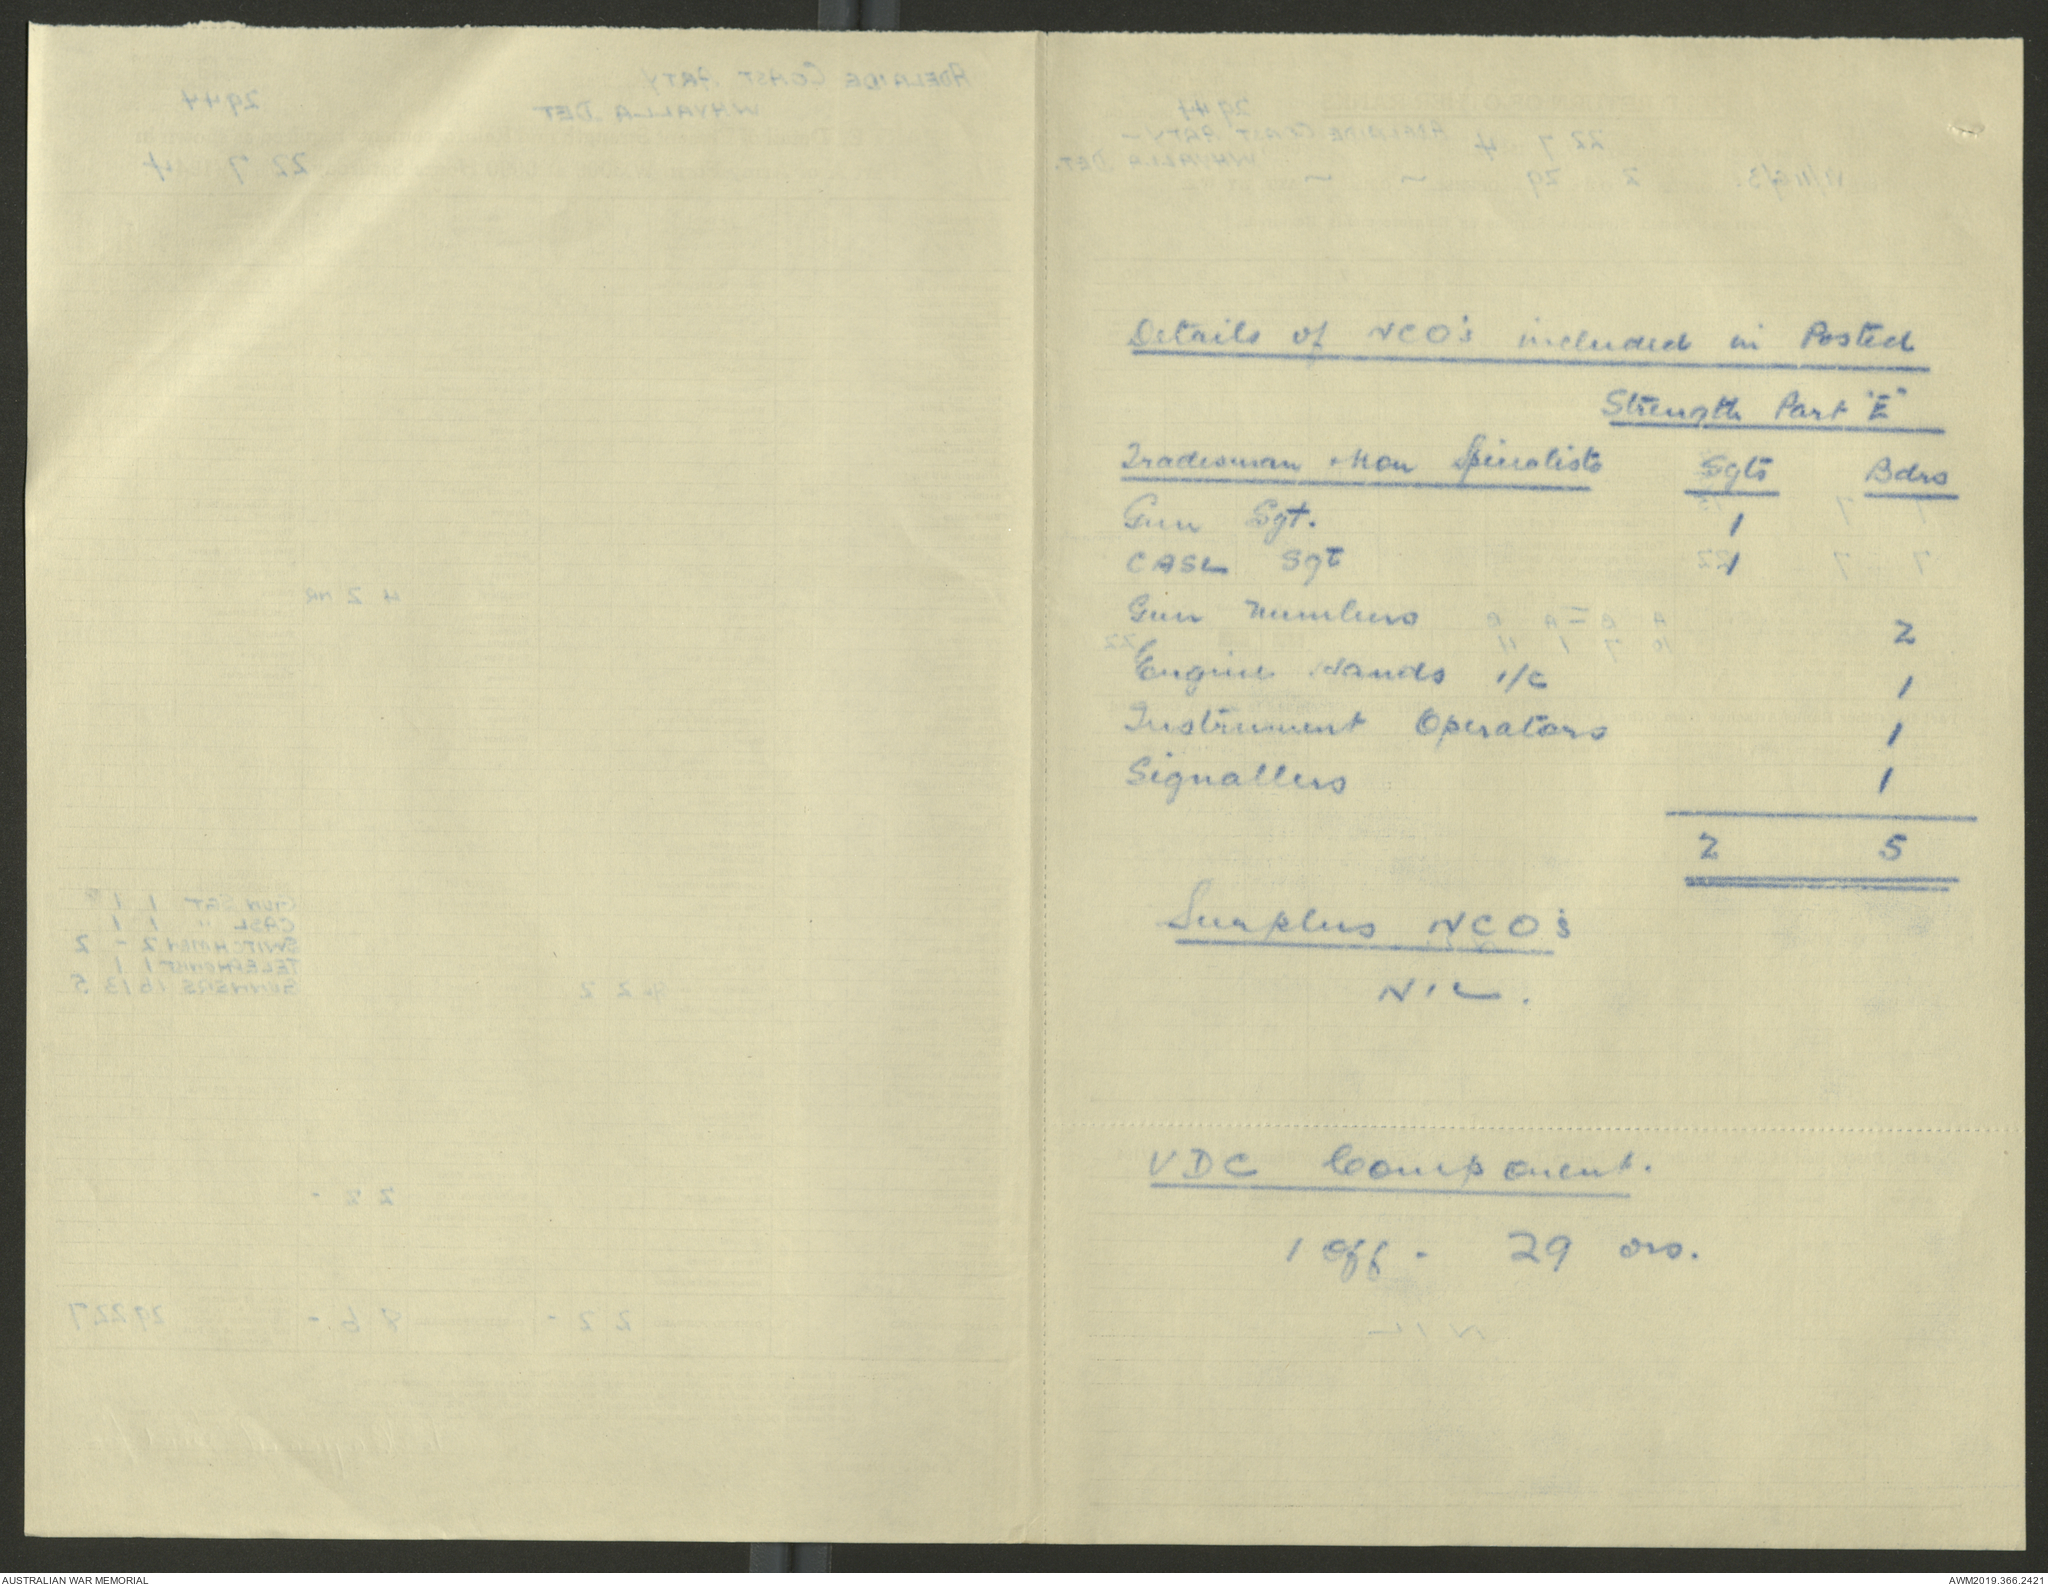 Details of NCO's included in Posted
Strength Part "E"
Tradesman & Non Specialists Sgts Bdrs
Gun Sgt. 1
CASL Sgt 1
Gun Numbers 2
Engine Hands i/c 1
Instrument Operators 1
Signallers 1
2 5
Surplus NCO's
NIL.
VDC Component.
1 Off - 29 ors.
AUSTRALIAN WAR MEMORIAL
AWM2019.366.2421